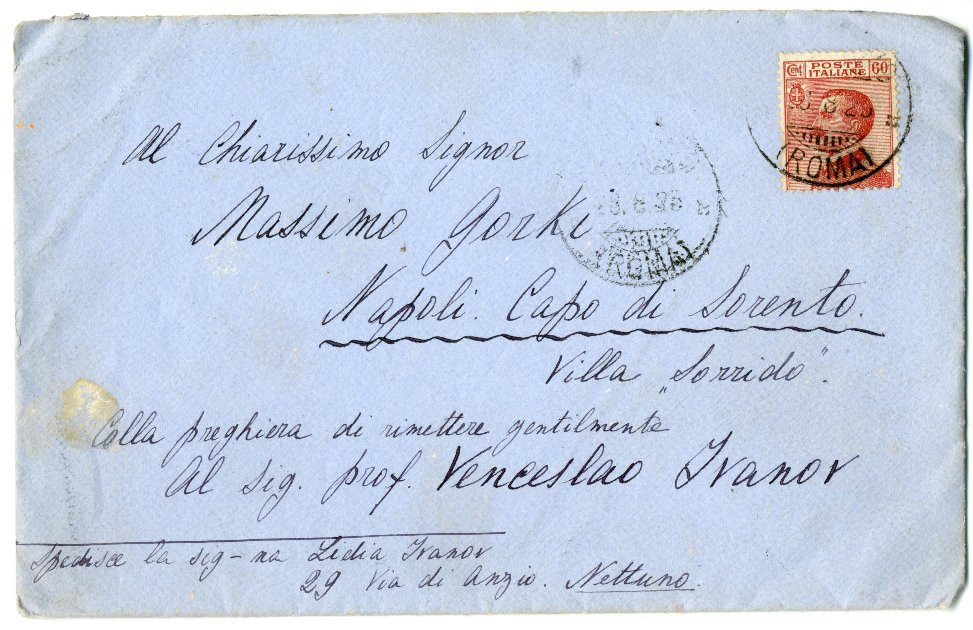 Cent POSTE ITALIANE 60
(ROMA)
(ROMA)
Al Chiarissimo Signor
Massimo Gorki
Napoli. Capo di Sorento.
Villa „Sorrido".
Colla preghiera di rimettere gentilmente
Al sig. prof. Venceslao Ivanov
Spedisce la sig-na Lidia Ivanov
29 Via di Anzio. Nettuno.